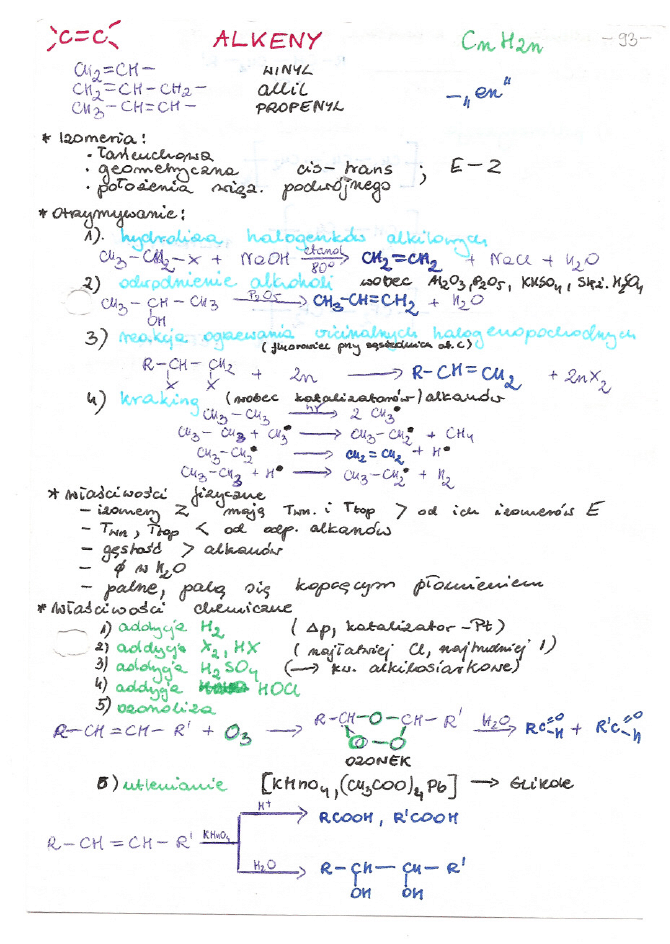 >C=C< ALKENY CnH2n -93-
CH2=CH- WINYL
CH2=CH-CH2- allil -„en"
CH3-CH=CH- PROPENYL
* Izomeria:
· łańcuchowa
· geometryczna cis-trans ; E-Z
· położenia wiąz. podwójnego
* Otrzymywanie:
1). hydroliza halogenków alkilowych
CH3-CH2-X + NaOH etanol 80° → CH2=CH2 + NaCl + H2O
2) odwodnienie alkoholi wobec Al2O3, P2O5, KHSO4, Stęż. H2SO4
CH3-CH-CH3 P2O5 → CH3-CH=CH2 + H2O
OH
3) reakcja ogrzewania vicinalnych halogenopochodnych
(fluorowiec przy sąsiednich at. C)
R-CH-CH2 + Zn → R-CH=CH2 + ZnX2
X X
4) kraking (wobec katalizatorów) alkanów
CH3-CH3 hν → 2 CH3•
CH3-CH3 + CH3• → CH3-CH2• + CH4
CH3-CH2• → CH2=CH2 + H•
CH3-CH3 + H• → CH3-CH2• + H2
* Właściwości fizyczne
- izomery Z mają Twn. i Ttop > od ich izomerów E
- Twn, Ttop < od odp. alkanów
- gęstość > alkanów
- ∅ w H2O
- palne, palą się kopcącym płomieniem
* Właściwości chemiczne
1) addycja H2 (Δp, katalizator -Pt)
2) addycja X2, HX (najłatwiej Cl, najtrudniej I)
3) addycja H2SO4 (→ kw. alkilosiarkowe)
4) addycja HOCl
5) ozonoliza
R-CH=CH-R' + O3 → R-CH-O-CH-R' H2O → RC=O-H + R'C=O-H
O-O
OZONEK
6) utlenianie [KMnO4, (CH3COO)4Pb] → Glikole
H+ → RCOOH, R'COOH
R-CH=CH-R' KMnO4
H2O → R-CH-CH-R'
OH OH